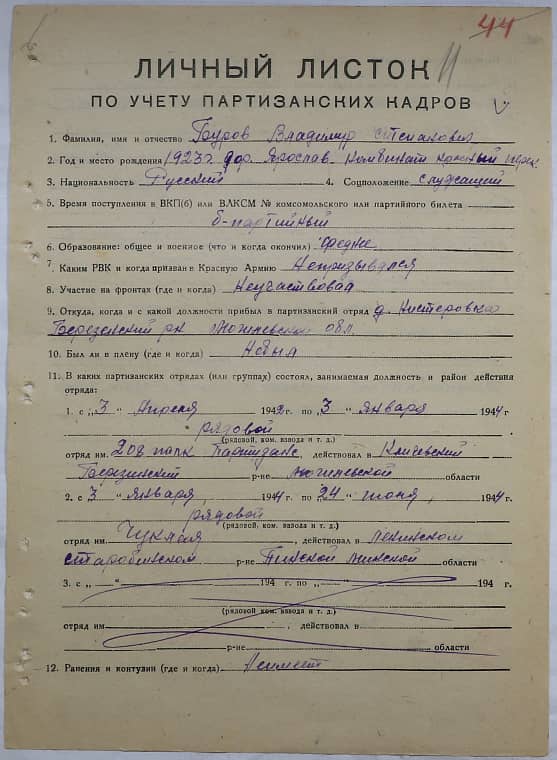 44
11
ЛИЧНЫЙ ЛИСТОК
ПО УЧЕТУ ПАРТИЗАНСКИХ КАДРОВ
1. Фамилия, имя и отчество Буров Владимир Степанович
2. Год и место рождения 1923г гор. Ярослав. Комбинат красный
3. Национальность Русский 4. Соцположение служащий
5. Время поступления в ВКП(б) или ВЛКСМ № комсомольского или партийного билета
б-партийный
6. Образование: общее и военное (что и когда окончил) средне
7. Каким РВК и когда призван в Красную Армию Непризывался
8. Участие на фронтах (где и когда) Неучаствовал
9. Откуда, когда и с какой должности прибыл в партизанский отряд д. Нистеровка
Березенский рн Могилевской обл.
10. Был ли в плену (где и когда) Небыл
11. В каких партизанских отрядах (или группах) состоял, занимаемая должность и район действия
отряда:
1. с „3 “ Апреля 1942 г. по „3 “ января 1944 г
рядовой
(рядовой, ком. взвода и т. д.)
отряд им. 208 полк Партизанс, действовал в Кличевский
Березинский р-не Могилевской области
2. с „3 “ января, 1944 г. по „24 “ июня, 1944 г
рядовой
(рядовой, ком. взвода и т. д.)
отряд им. Чуклая, действовал в Ленинском
старобинском р-не Пинской Минской области
3. с „ “ 194 г. по „ “ 194 г.
(рядовой, ком. взвода и т. д.)
отряд им , действовал в
р-не области
12. Ранения и контузии (где и когда) Неимеет